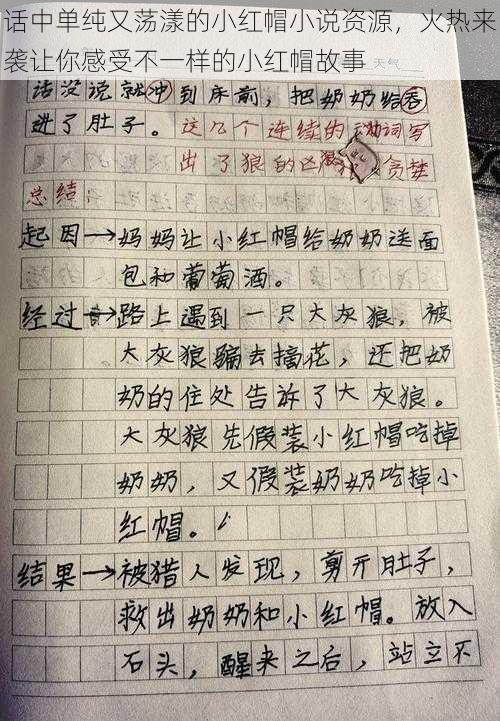 话中单纯又荡漾的小红帽小说资源，火热来
袭让你感受不一样的小红帽故事
天气
话没说就冲到床前，把奶奶给吞
进了肚子。这几个连续的动词写
出了狼的凶狠 贪婪
总结：
起因→妈妈让小红帽给奶奶送面
包和葡萄酒。
经过→路上遇到一只大灰狼，被
大灰狼骗去摘花，还把奶
奶的住处告诉了大灰狼。
大灰狼先假装小红帽吃掉
奶奶，又假装奶奶吃掉小
红帽。
结果→被猎人发现，剪开肚子，
救出奶奶和小红帽。放入
石头，醒来之后，站立不